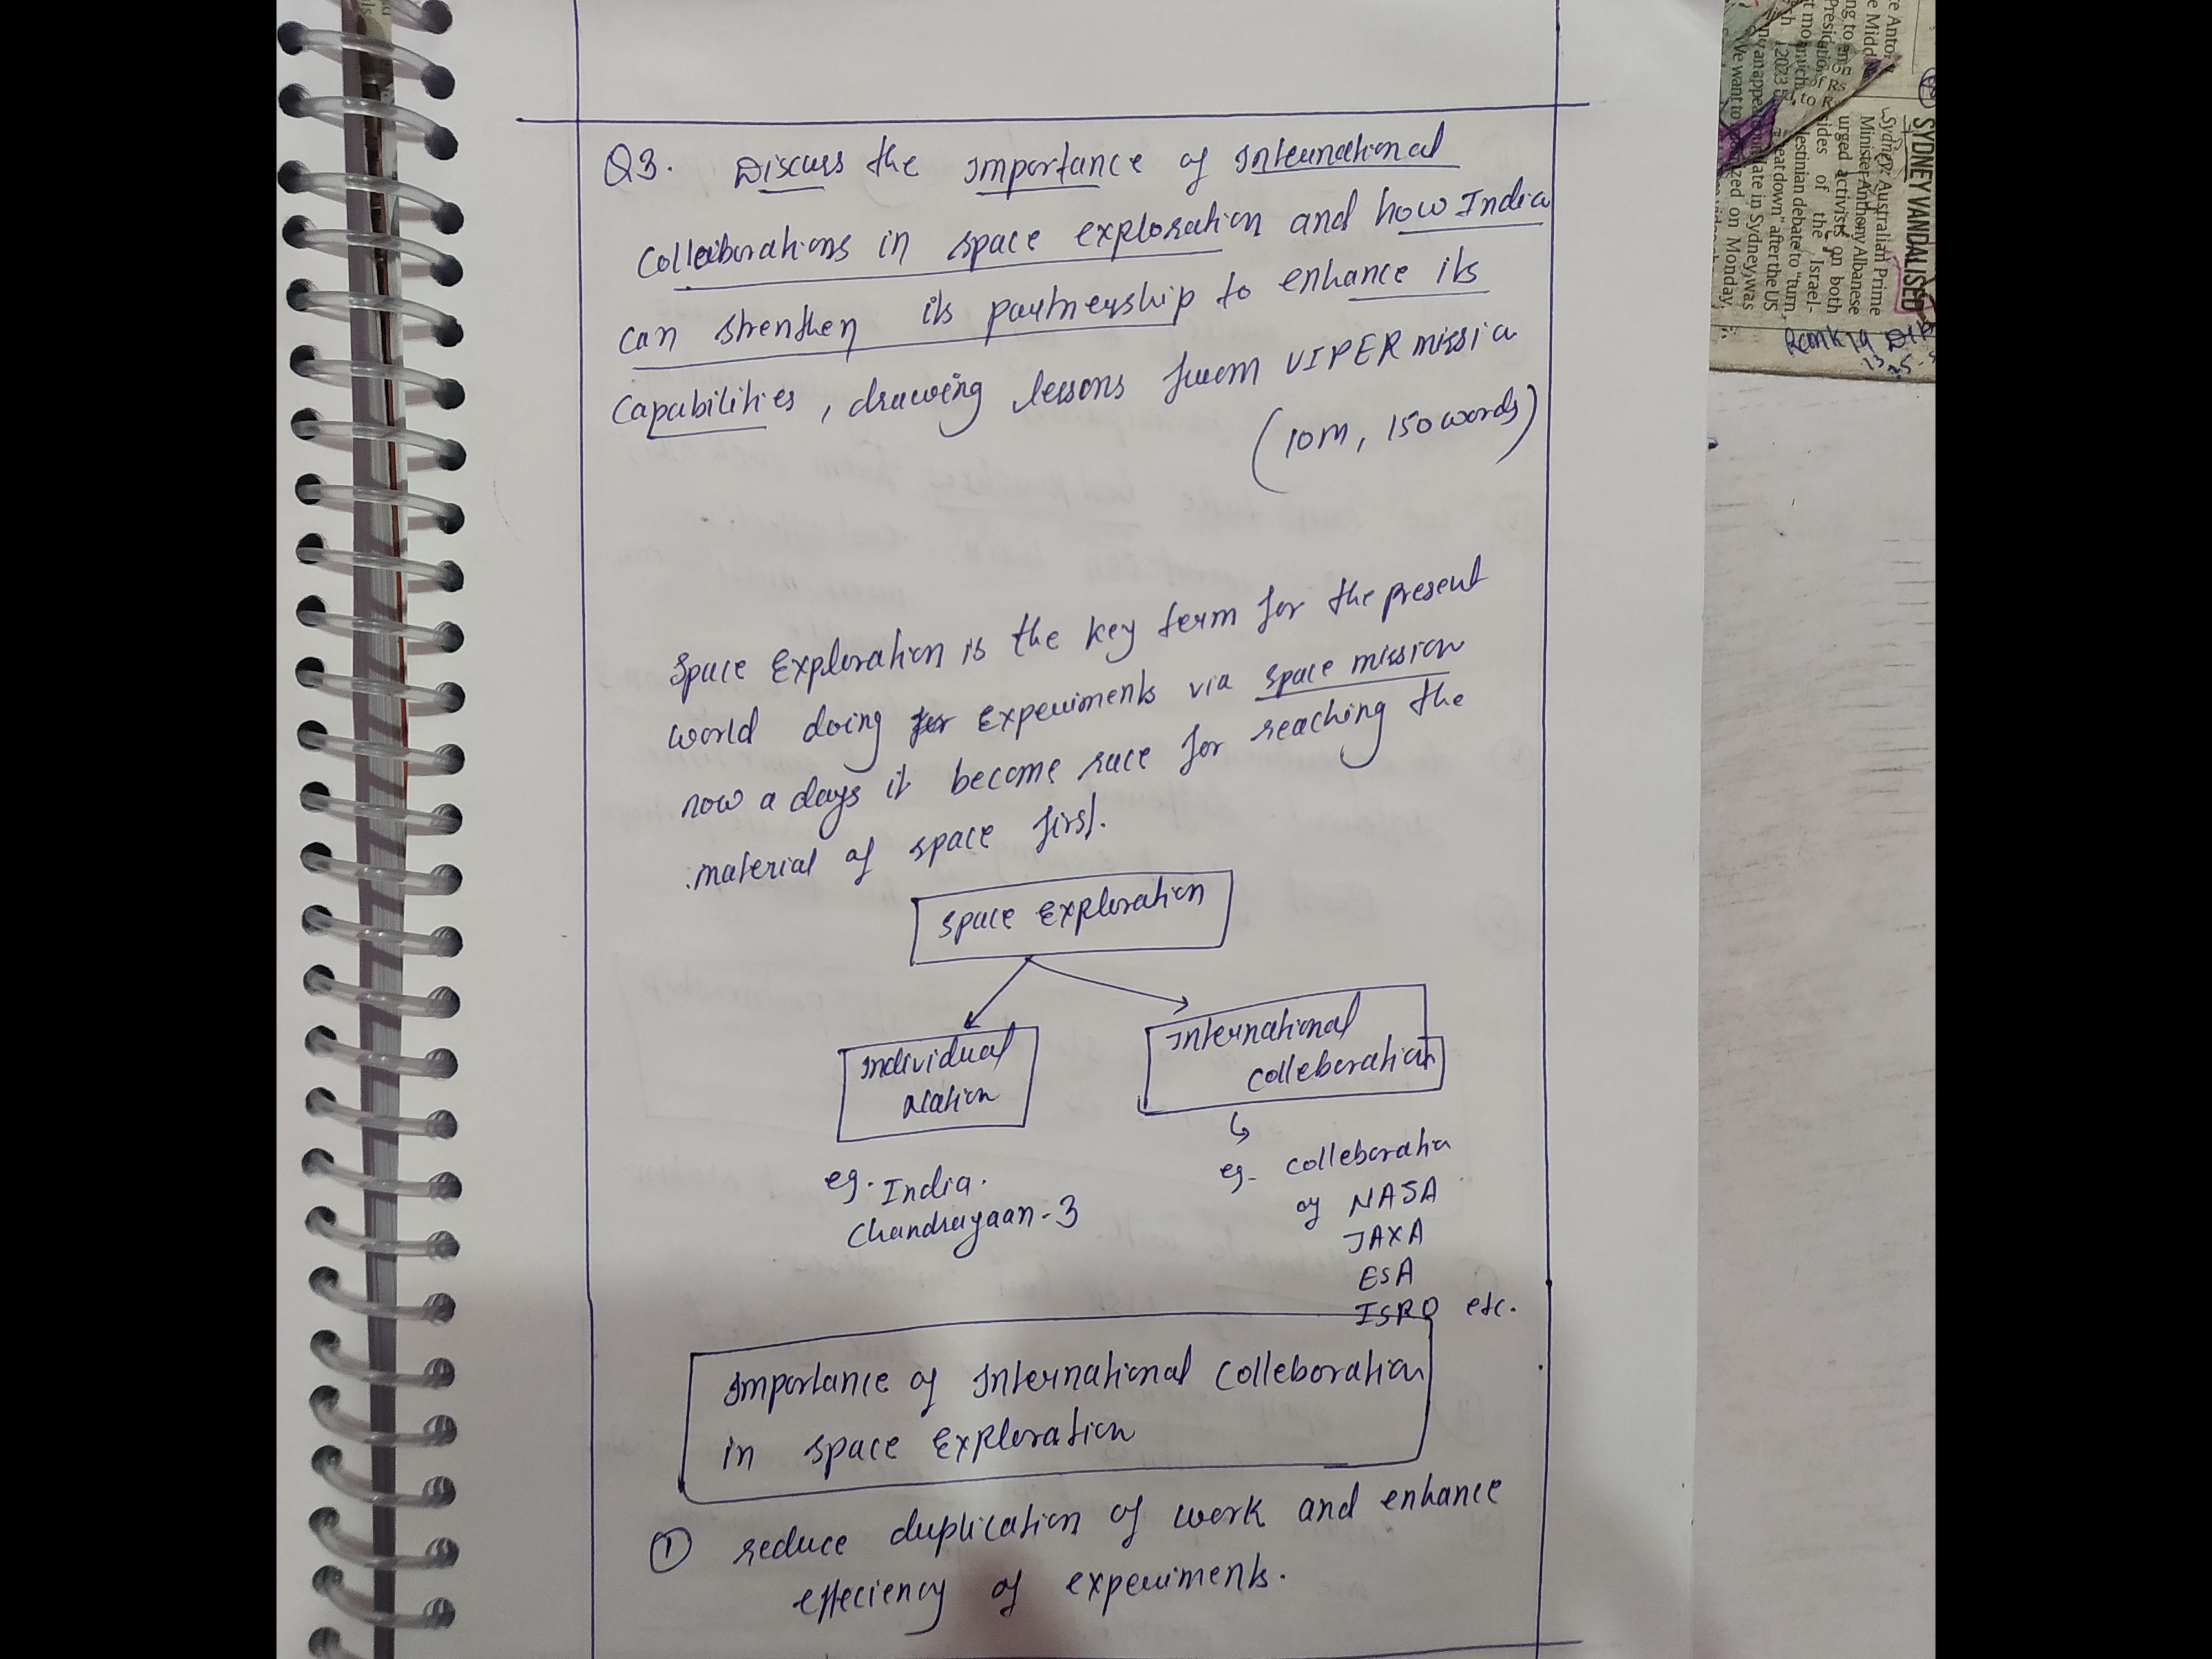 Q3. Discuss the importance of International
Colleborations in space exploration and how India
can strenthen its partnership to enhance its
Capabilities, drawing lessons from VIPER missio
(10m, 150 words)
Space Exploration is the key term for the present
world doing experiments via space mission
now a days it become race for reaching the
material of space first.
Space Exploration
Individual
Nation
International
Colleberation
eg. India.
Chandrayaan-3
eg- Colleboratin
of NASA
JAXA
ESA
ISRO etc.
Importance of International Colleboration
in space Exploration
① reduce duplication of work and enhance
effeciency of experiments.
SYDNEY VANDALISED
Sydney: Australian Prime
Minister Anthony Albanese
urged activists on both
sides of the Israel-
estinian debate to "turn
eat down" after the US
late in Sydney was
on Monday,
We want to
2023